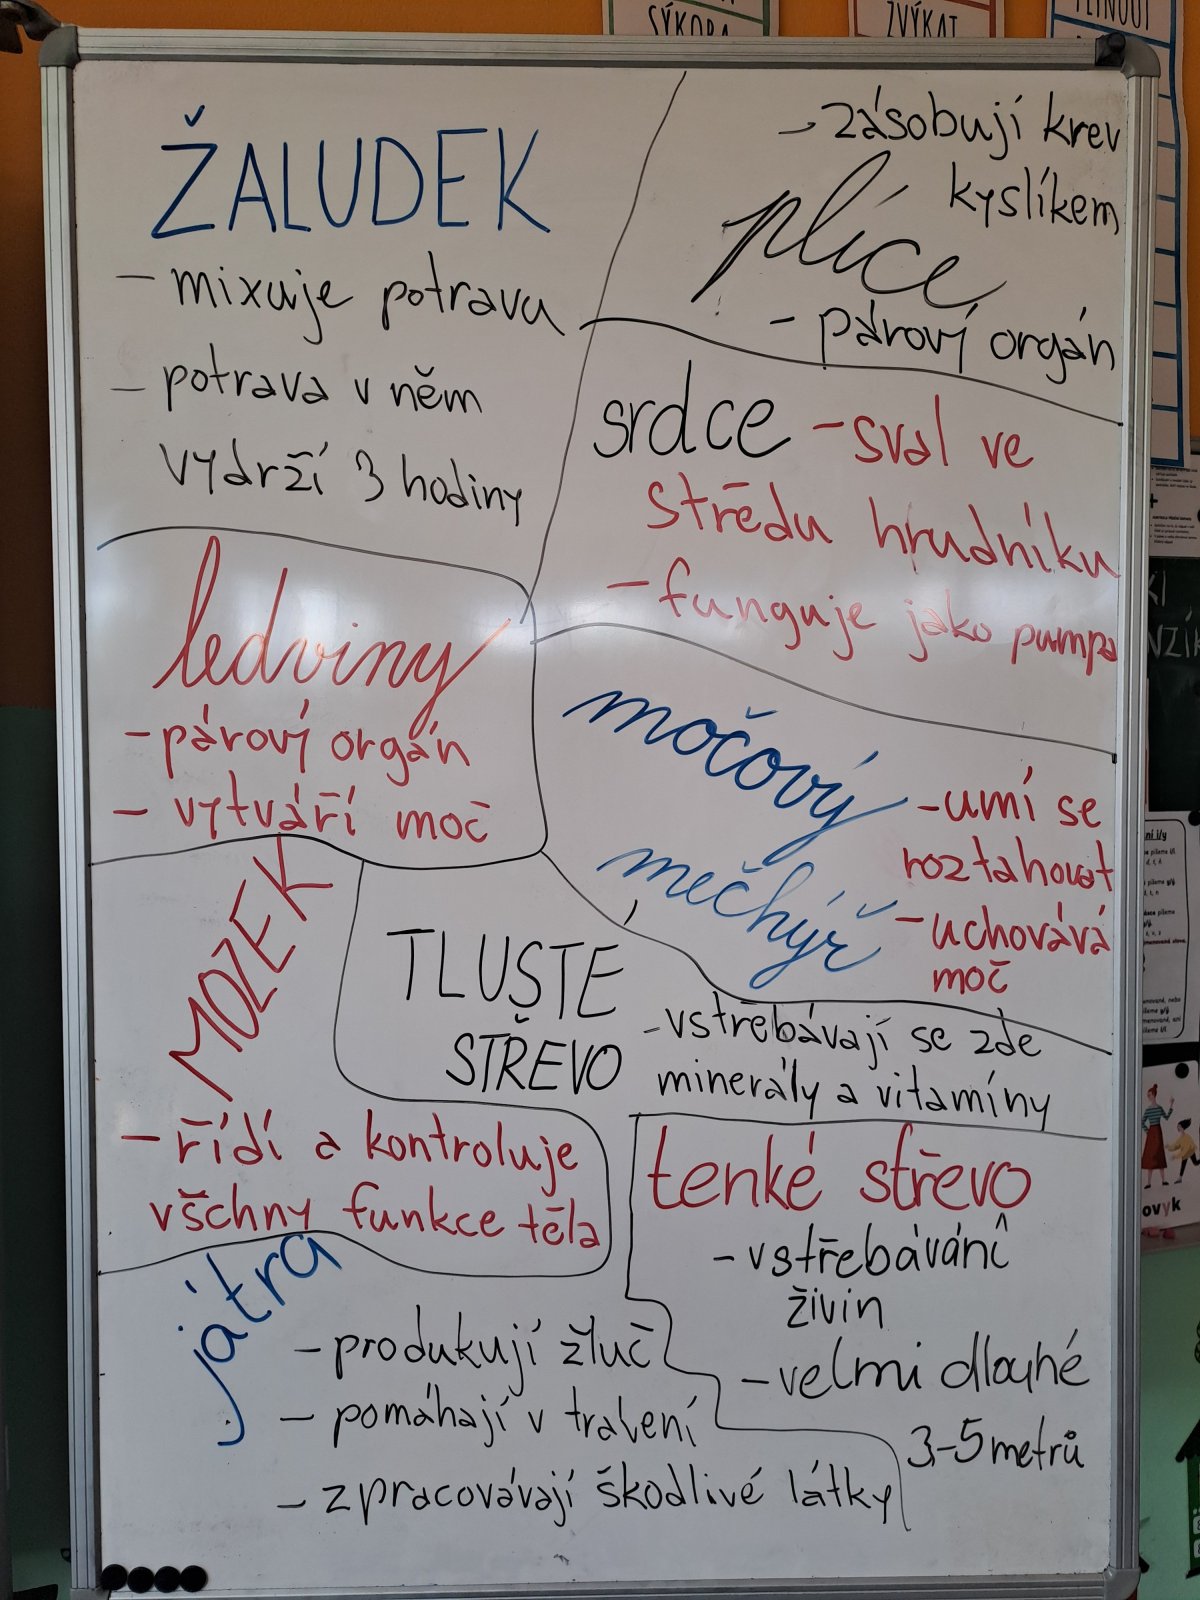 SÝKORA
ZVÝKAT
PLYNOUT
ŽALUDEK
- mixuje potravu
- potrava v něm
vydrží 3 hodiny
- zásobují krev
kyslíkem
plíce
- párový orgán
srdce - sval ve
středu hrudníku
- funguje jako pumpa
ledviny
- párový orgán
- vytváří moč
močový
měchýř
- umí se
roztahovat
- uchovává
moč
MOZEK
- řídí a kontroluje
všchny funkce těla
TLUSTÉ
STŘEVO
- vstřebávají se zde
minerály a vitamíny
tenké střevo
- vstřebávání
živin
- velmi dlouhé
3-5 metrů
játra
- produkují žluč
- pomáhají v trávení
- zpracovávají škodlivé látky